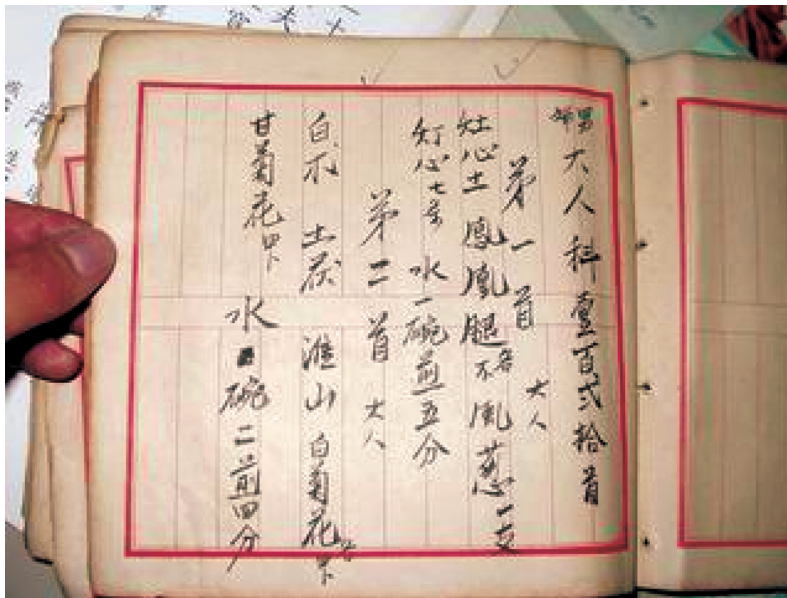 男婦 大人科壹百弍拾首
第一首 大人
灶心土 鳳凰腿 各 不 風葱一支
灯心七条 水一碗煎五分
第二首 大人
白朩 土茯 淮山 白菊花
甘菊花 水 碗二煎四分